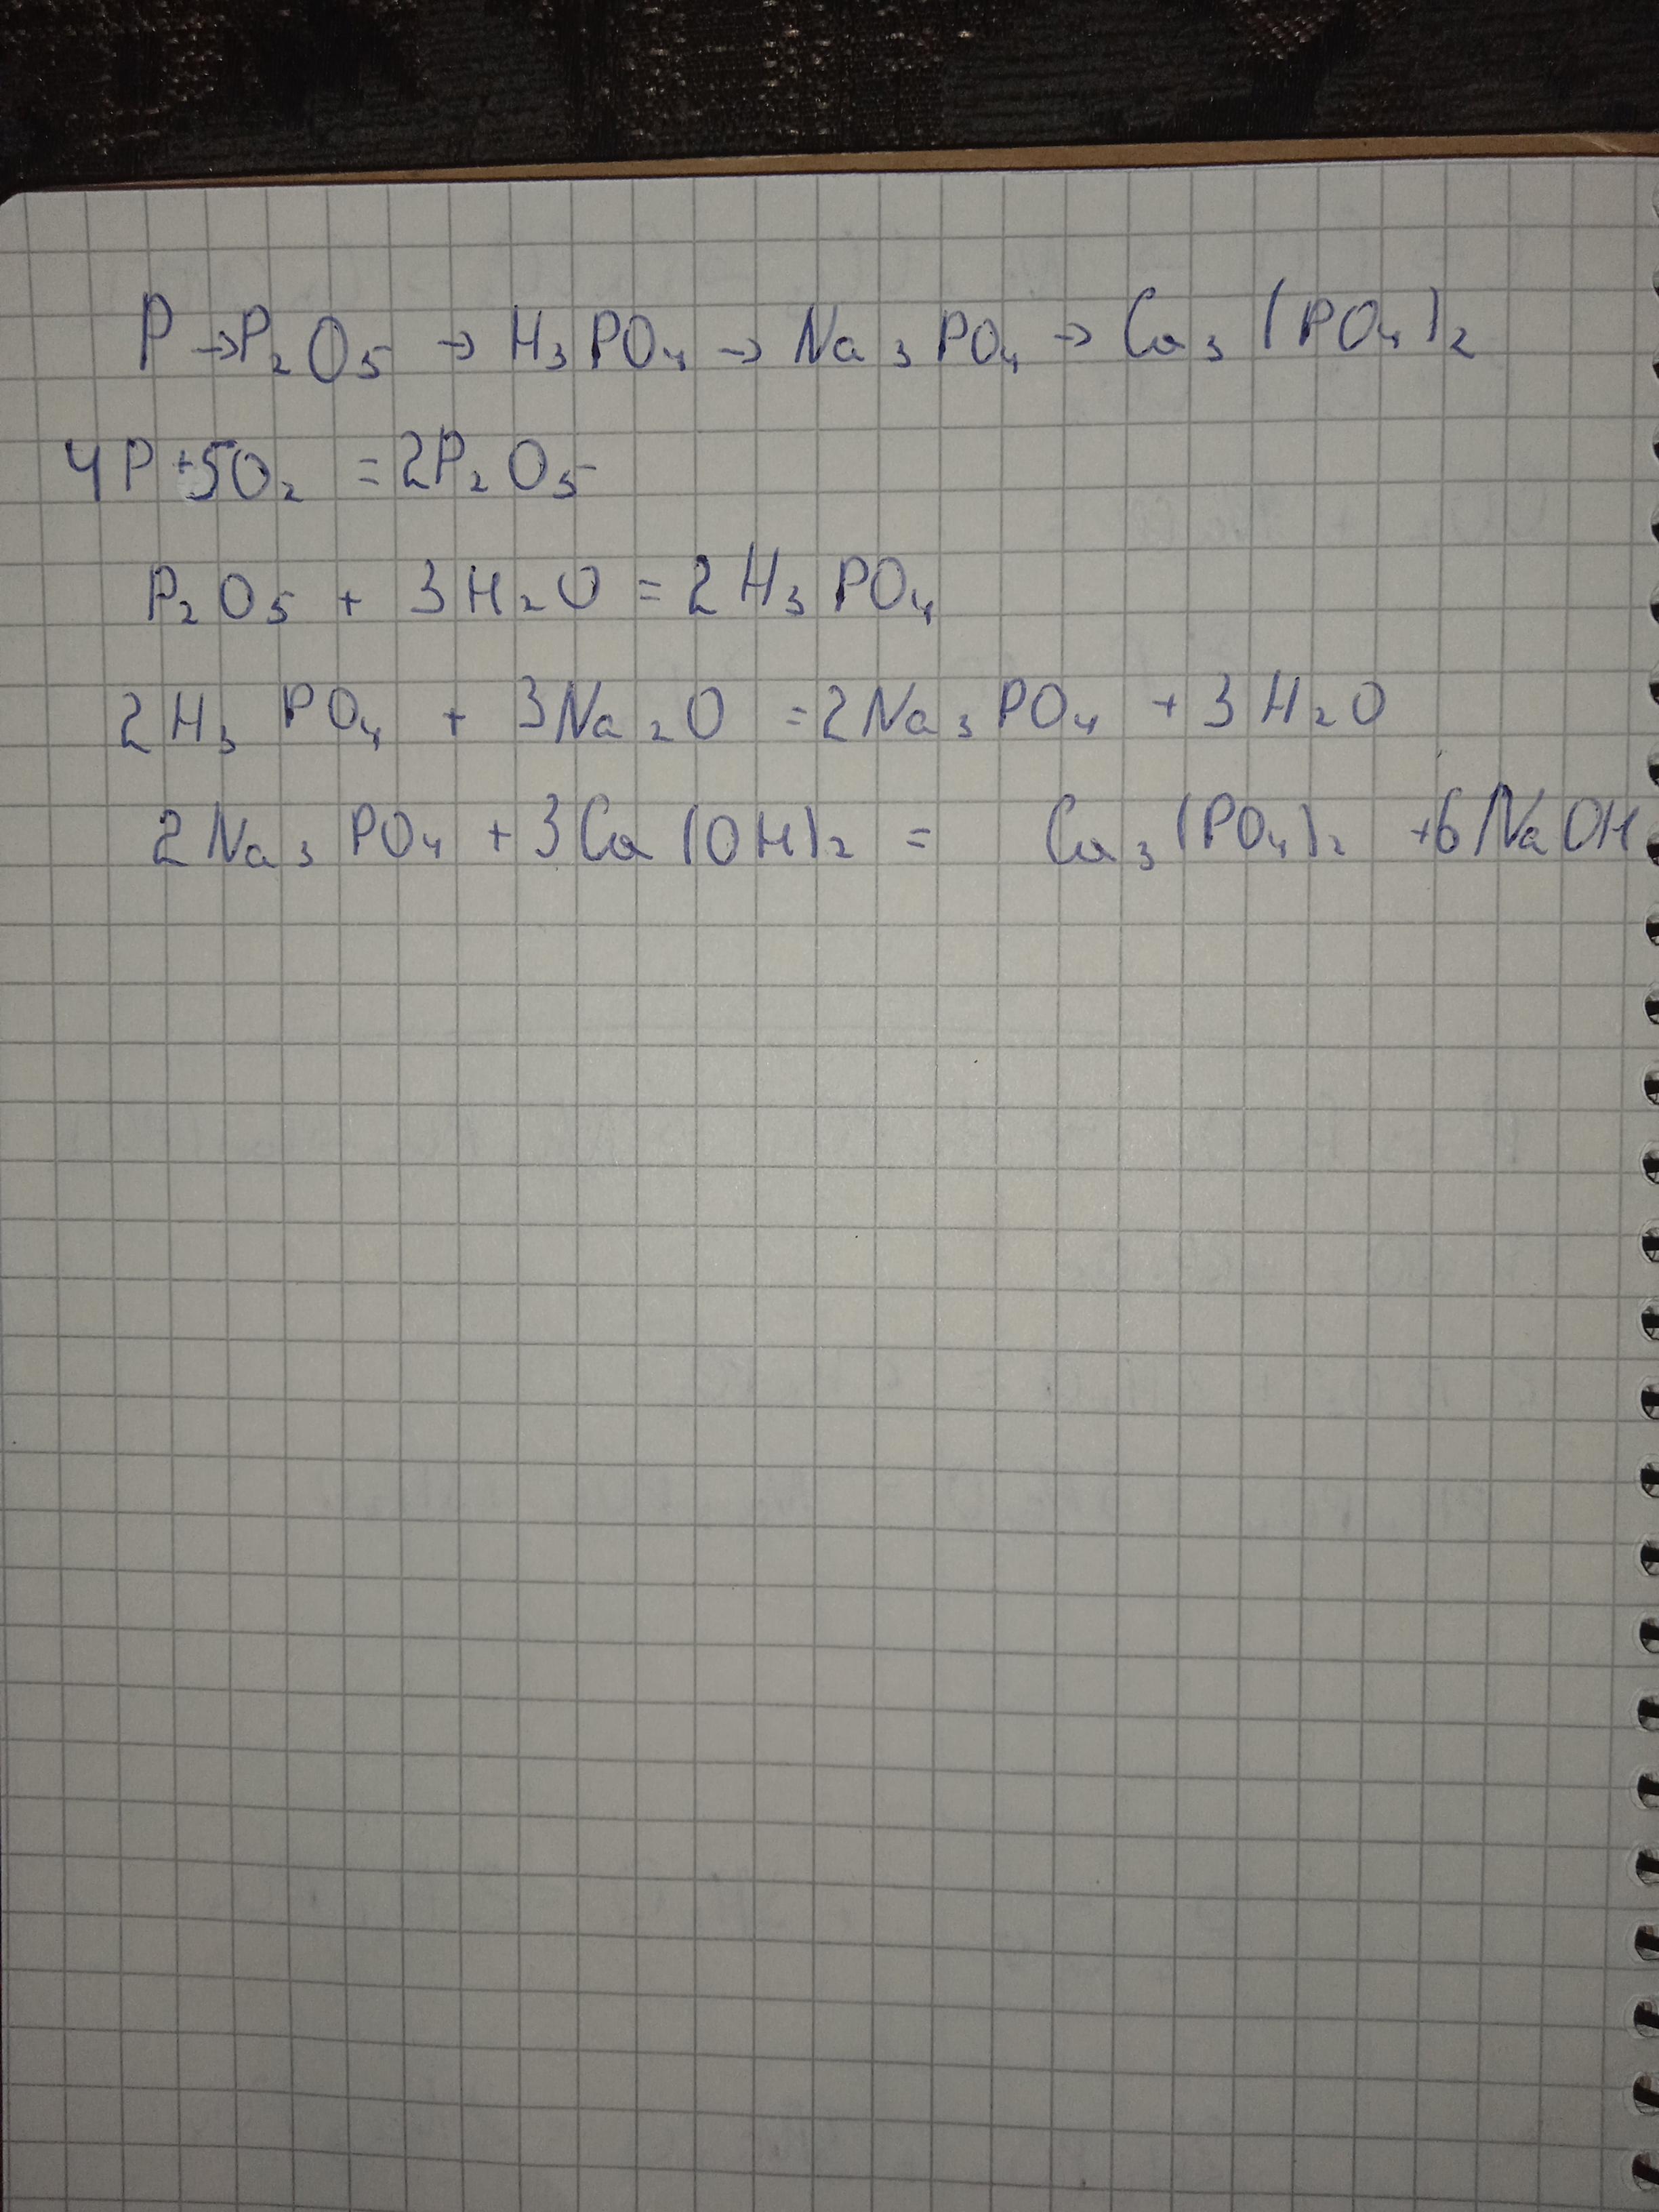 P → P₂O₅ → H₃PO₄ → Na₃PO₄ → Ca₃(PO₄)₂
4P + 5O₂ = 2P₂O₅
P₂O₅ + 3H₂O = 2H₃PO₄
2H₃PO₄ + 3Na₂O = 2Na₃PO₄ + 3H₂O
2Na₃PO₄ + 3Ca(OH)₂ = Ca₃(PO₄)₂ + 6NaOH